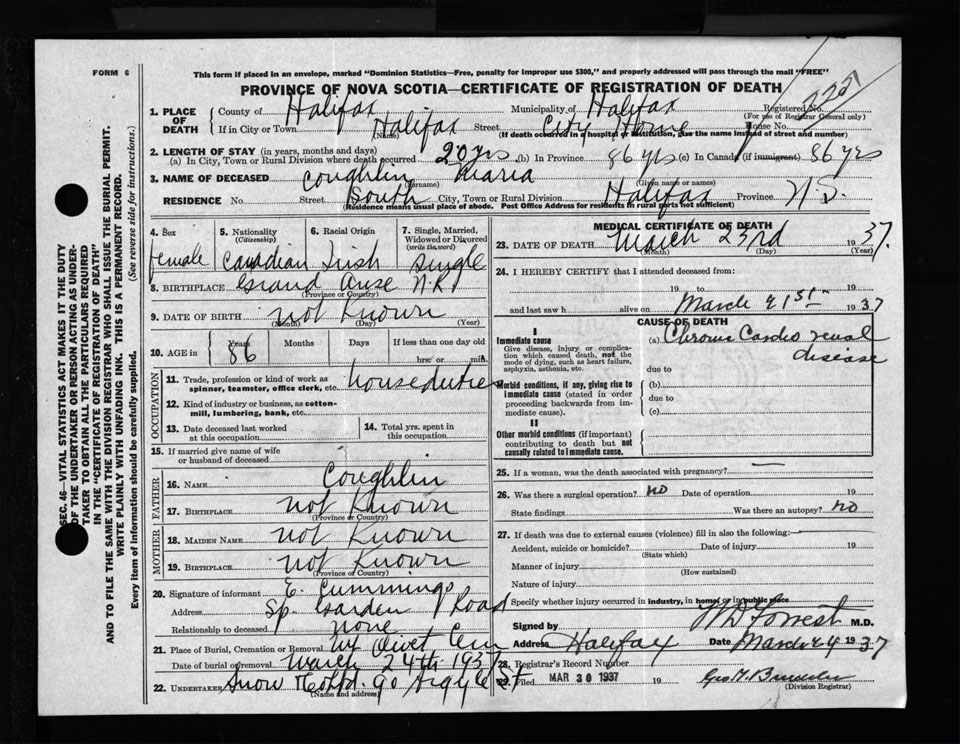 FORM 6
This form if placed in an envelope, marked "Dominion Statistics—Free, penalty for improper use $300," and properly addressed will pass through the mail "FREE"
PROVINCE OF NOVA SCOTIA—CERTIFICATE OF REGISTRATION OF DEATH
1. PLACE OF DEATH
County of Halifax Municipality of Halifax Registered No.
(For use of Registrar General only)
If in City or Town Halifax Street City Home House No.
(Name) (If death occurred in hospital or institution, give the name instead of street and number)
2. LENGTH OF STAY (in years, months and days)
(a) In City, Town or Rural Division where death occurred 20 yrs (b) In Province 86 yrs (c) In Canada (if immigrant) 86 yrs
3. NAME OF DECEASED Coughlin Maria
(Surname) (Given name or names)
RESIDENCE No. Street South City, Town or Rural Division Halifax Province N.S.
(Residence means usual place of abode. Post Office Address for residents in rural parts not sufficient)
4. Sex 5. Nationality (Citizenship) 6. Racial Origin 7. Single, Married, Widowed or Divorced (write the word)
female Canadian Irish Single
8. BIRTHPLACE Grand Anse N.B.
(Province or Country)
9. DATE OF BIRTH not Known
(Month) (Day) (Year)
10. AGE in Years Months Days If less than one day old
86 hrs. or min.
OCCUPATION
11. Trade, profession or kind of work as spinner, teamster, office clerk, etc. house duties
12. Kind of industry or business, as cotton-mill, lumbering, bank, etc.
13. Date deceased last worked at this occupation
14. Total yrs. spent in this occupation
15. If married give name of wife or husband of deceased
FATHER
16. NAME Coughlin
17. BIRTHPLACE not Known
(Province or Country)
MOTHER
18. MAIDEN NAME not Known
19. BIRTHPLACE not Known
(Province or Country)
20. Signature of informant E. Cummings
Address Sp. Garden Road
Relationship to deceased none
21. Place of Burial, Cremation or Removal Mt Olivet Cem
Date of burial or removal March 24th 1937
22. UNDERTAKER Snow & Co Ltd. 90 Argyle St
(Name and address)
MEDICAL CERTIFICATE OF DEATH
23. DATE OF DEATH March 23rd 1937.
(Month) (Day) (Year)
24. I HEREBY CERTIFY that I attended deceased from
19 to 19
and last saw h alive on March 21st 1937
CAUSE OF DEATH
I
Immediate cause
Give disease, injury or complication which caused death, not the mode of dying, such as heart failure, asphyxia, asthenia, etc.
(a) Chronic Cardio renal disease
due to
Morbid conditions, if any, giving rise to immediate cause (stated in order proceeding backwards from immediate cause).
(b)
due to
(c)
II
Other morbid conditions (if important) contributing to death but not causally related to immediate cause.
25. If a woman, was the death associated with pregnancy? —
26. Was there a surgical operation? no Date of operation 19
State findings Was there an autopsy? no
27. If death was due to external causes (violence) fill in also the following:—
Accident, suicide or homicide? Date of injury 19
(State which)
Manner of injury
(How sustained)
Nature of injury
Specify whether injury occurred in industry, in home, or in public place
Signed by W D Forrest M.D.
Address Halifax Date March 24 1937
28. Registrar's Record Number
29. Filed MAR 30 1937 19
(Division Registrar)
SEC. 46—VITAL STATISTICS ACT MAKES IT THE DUTY OF THE UNDERTAKER OR PERSON ACTING AS UNDERTAKER TO OBTAIN ALL THE PARTICULARS REQUIRED IN THE "CERTIFICATE OF REGISTRATION OF DEATH" AND TO FILE THE SAME WITH THE DIVISION REGISTRAR WHO SHALL ISSUE THE BURIAL PERMIT.
WRITE PLAINLY WITH UNFADING INK. THIS IS A PERMANENT RECORD.
Every item of information should be carefully supplied. (See reverse side for instructions.)